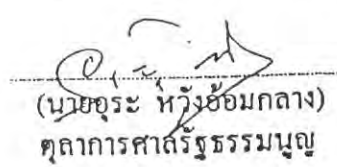 (นายอุระ หวังอ้อมกลาง)
ตุลาการศาลรัฐธรรมนูญ